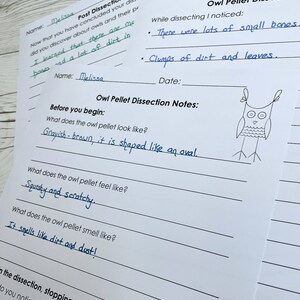 Owl Pellet Disse
While dissecting I noticed:
• There were lots of small bones.
• Clumps of dirt and leaves.
Name: Melissa
Post Dissection
Now that you have concluded your
did you discover about owls and their
I learned that there are
and a lot of dirt in
Name: Melissa Date:
Owl Pellet Dissection Notes:
Before you begin:
What does the owl pellet look like?
Grayish-brown, it is shaped like an oval.
What does the owl pellet feel like?
Squishy and scratchy.
What does the owl pellet smell like?
It smells like dirt and dust!
the dissection, stopping
do you notic